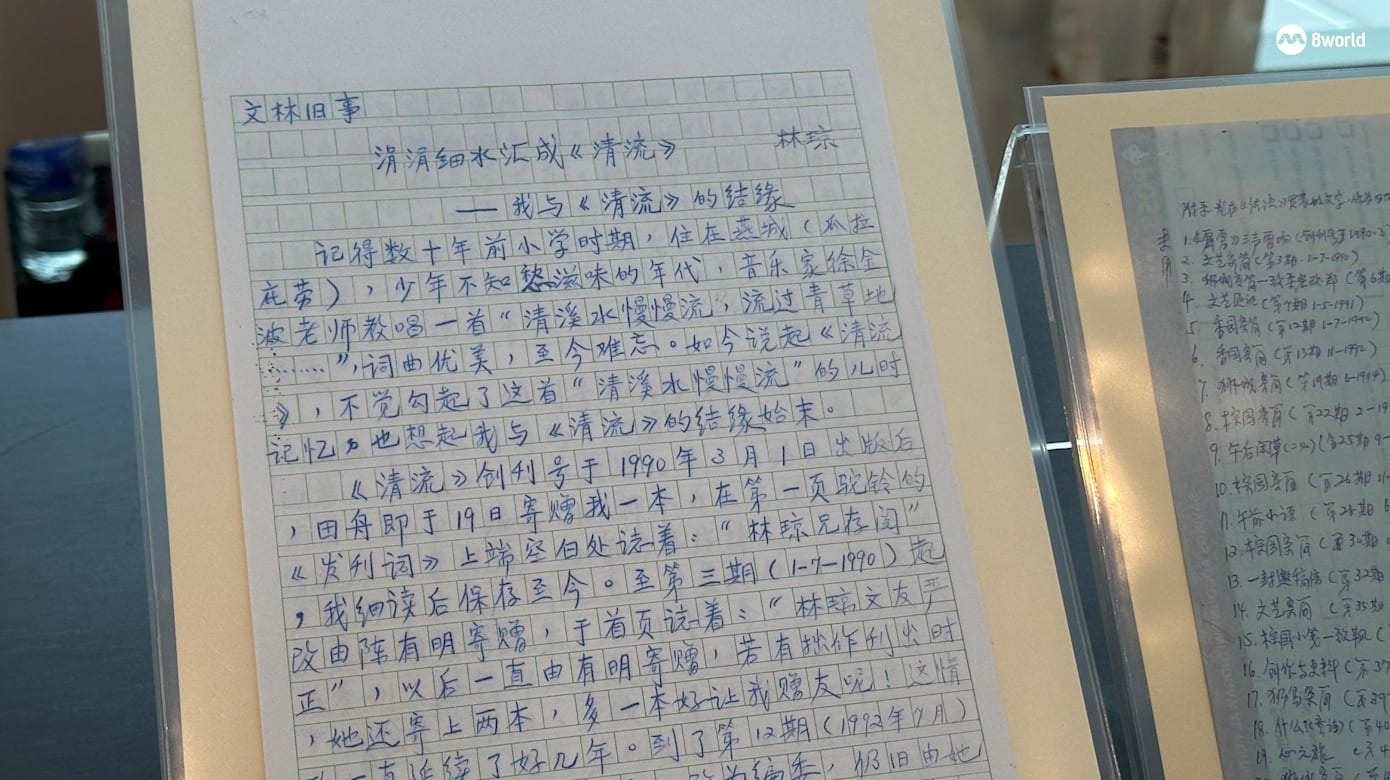 8world
文林旧事
涓涓细水汇成《清流》 林琼
——我与《清流》的结缘
记得数十年前小学时期，住在燕城（瓜拉
庇劳），少年不知愁滋味的年代，音乐家徐金
波老师教唱一首“清溪水慢慢流，流过青草地
………”，词曲优美，至今难忘。如今说起《清流
》，不觉勾起了这首“清溪水慢慢流”的儿时
记忆，也想起我与《清流》的结缘始末。
《清流》创刊号于1990年3月1日出版后
，田舟即于19日寄赠我一本，在第一页驼铃的
《发刊词》上端空白处誌着：“林琼兄存阅”
，我细读后保存至今。至第三期（1-7-1990）起
改由陈有明寄赠，于首页誌着：“林琼文友严
正”，以后一直由有明寄赠，若有拙作刊出时
，她还寄上两本，多一本好让我赠友呢！这情
一直延续了好几年。到了第12期（1992年7月）
改为编委，仍旧由她
2. 文艺
4. 文艺 1-5-1991)
5. 香国 (第12期 1-7-1992)
6. 香国 (第13期 11-1992)
7. 狮城 (第19期
8. 棕国 (第22期 2-19
9. 午后闲草(二) (第25期 9-
10. 棕国 (第26期 11-
11. 午前小语 (第28期
12. 棕国
13. 一封 (第32期
14. 文艺 (第35期
15. 棕国小
16. 创作与史料 (第37
17. (第39
18. 什么
19.